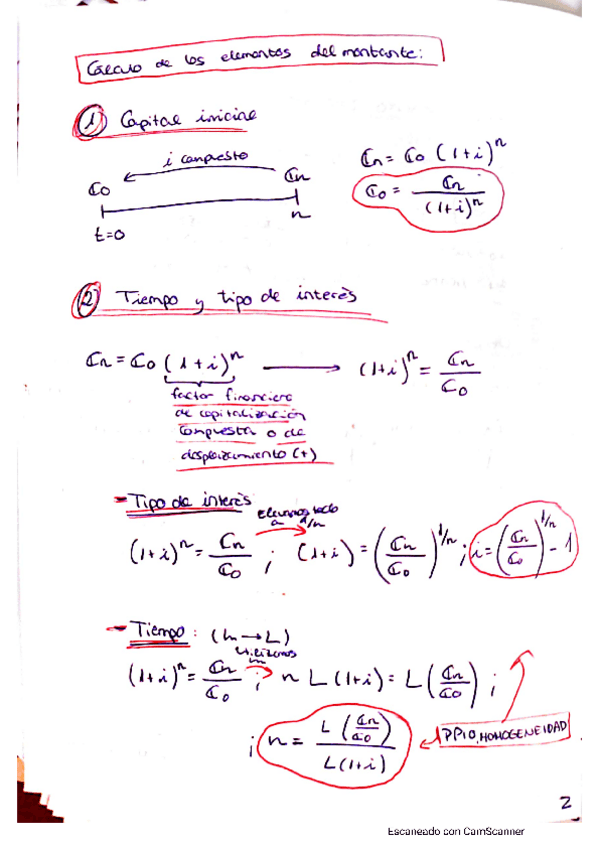 Cálculo de los elementos del montante:
1 Capital inicial
i compuesto
C0 Cn
t=0 n
Cn = C0 (1+i)^n
C0 = Cn / (1+i)^n
2 Tiempo y tipo de interès
Cn = C0 (1+i)^n → (1+i)^n = Cn / C0
factor financiero
de capitalización
compuesta o de
desplazamiento (+)
- Tipo de interès
elevamos todo
a 1/n
(1+i)^n = Cn / C0 ; (1+i) = (Cn / C0)^1/n ; i = (Cn / C0)^1/n - 1
- Tiempo: (ln → L)
utilizamos
ln
(1+i)^n = Cn / C0 ; n L (1+i) = L (Cn / C0) ;
; n = L (Cn / C0) / L(1+i) ← PPIO. HOMOGENEIDAD
2
Escaneado con CamScanner